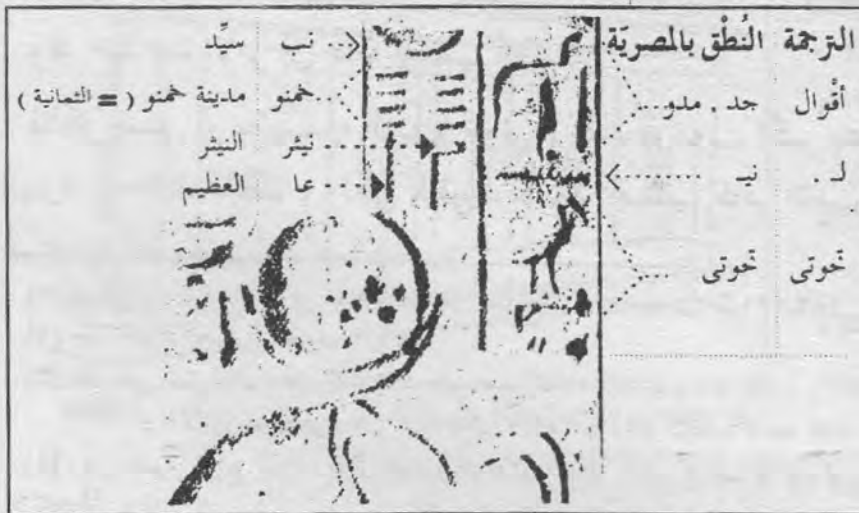 الترجمة النُطْق بالمصريّة
أقْوال جد . مدو
لـ . نيـ
تحوتى تحوتى
نب سيِّد
خمنو مدينة خمنو ( = الثمانية )
نيثر النيثر
عا العظيم